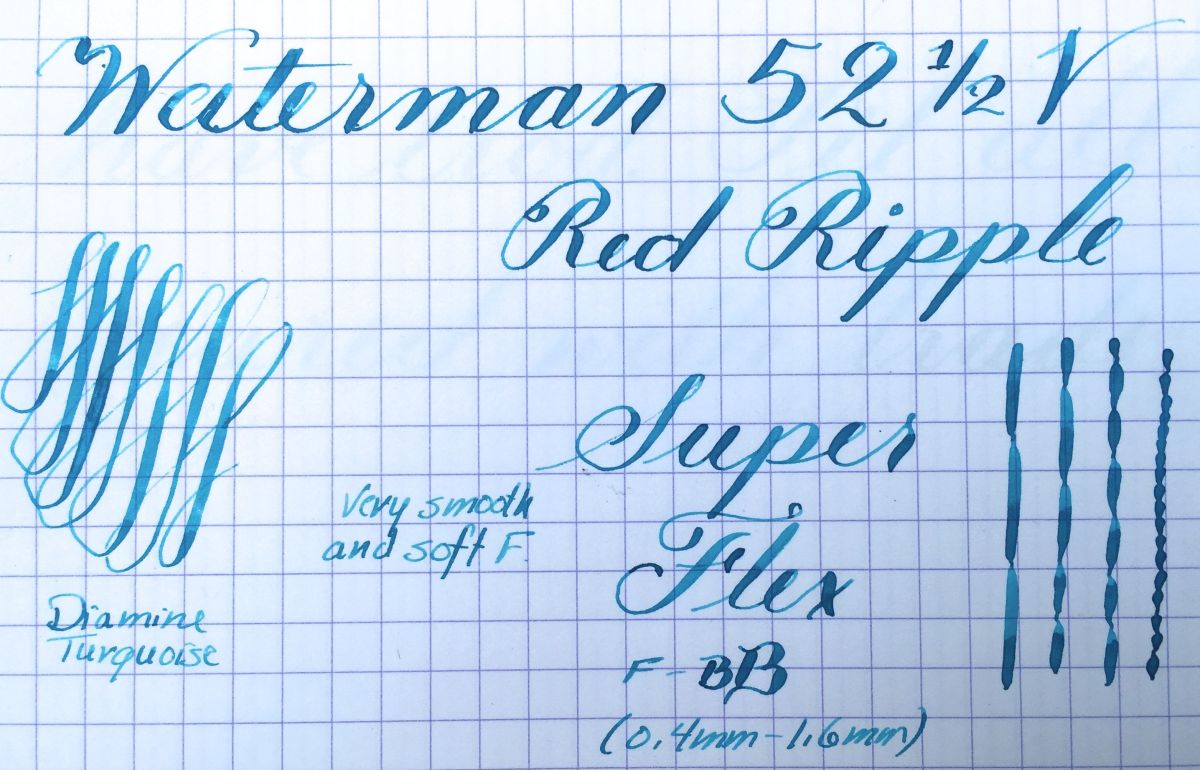 Waterman 52 1/2 V
Red Ripple
Super
Flex
Very smooth
and soft F.
Diamine
Turquoise
F - BB
(0.4mm - 1.6mm)